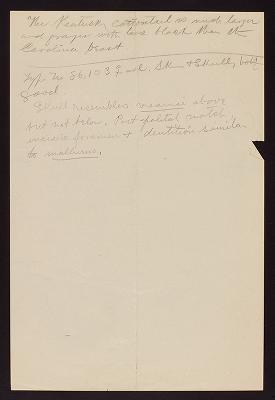 The Kentucky cottontail is much larger
and grayer with less black than the
Carolina beast
Type No 86,103 ♀ ad. Sk + Skull, both
good.
Skull resembles mearnsi above
but not below. Post palatal notch,
incisive foramen + dentition similar
to mallurus.